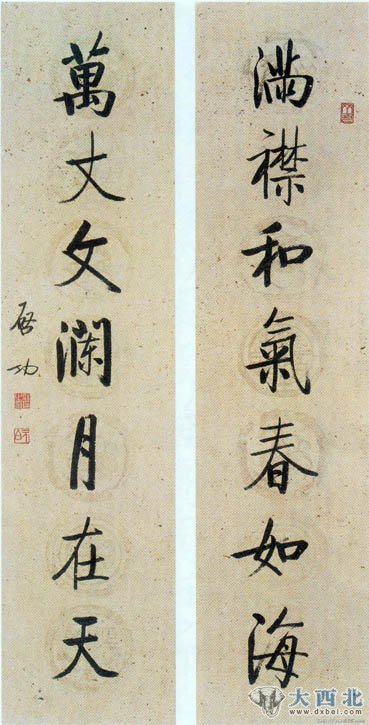 满襟和氣春如海
萬丈文澜月在天
啓功
大西北
www.dxbei.com